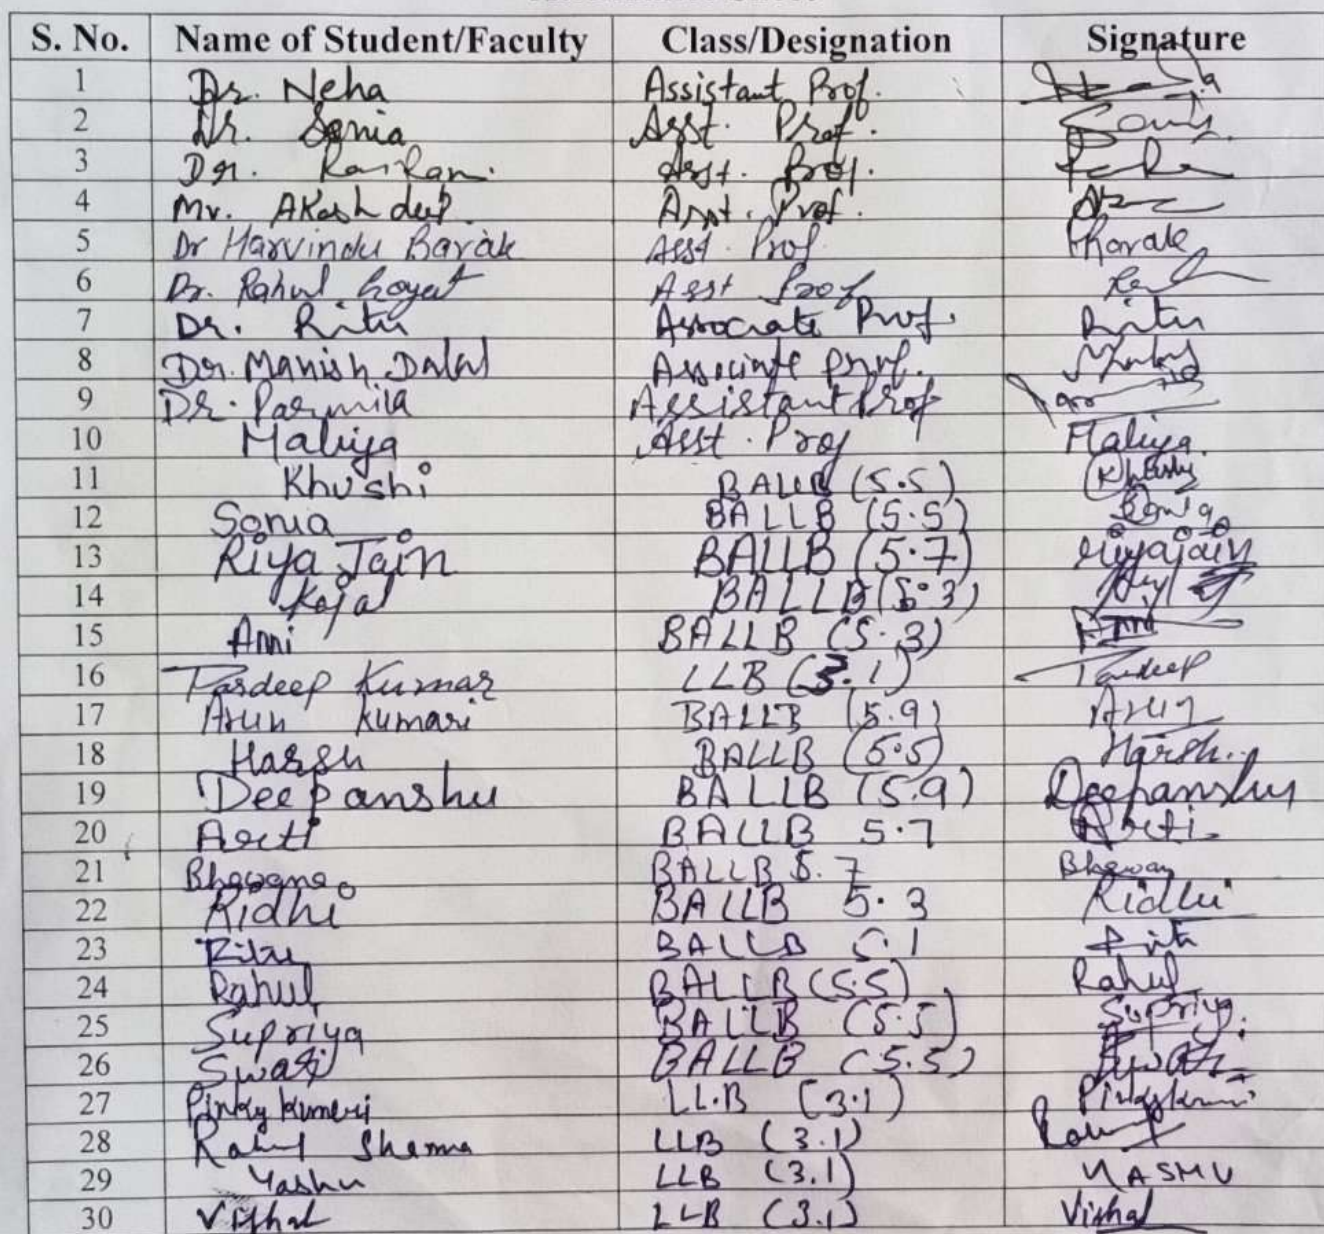 S. No. Name of Student/Faculty Class/Designation Signature
1 Dr. Neha Assistant Prof.
2 Dr. Sonia Asst. Prof. Sonia
3 Dr. Raj Rani Asst. Prof.
4 Mr. Akashdeep Asst. Prof.
5 Dr Harvinder Barak Asst. Prof Hbarak
6 Dr. Rahul Goyat Asst Prof
7 Dr. Ritu Associate Prof. Ritu
8 Dr. Manish Dalal Associate Prof.
9 Dr. Parmila Assistant Prof
10 Asst. Prof
11 Khushi BALLB (5.5) Khushi
12 Sonia BALLB (5.5) Sonia
13 Riya Jain BALLB (5.7) riyajain
14 Kajal BALLB (5.3)
15 Anni BALLB (5.3) Anni
16 Pardeep Kumar LLB (3.1) Pardeep
17 Arun Kumari BALLB (5.9) Arun
18 Harsh BALLB (5.5) Harsh..
19 Deepanshu BALLB (5.9) Deepanshu
20 Arti BALLB 5.7 Arti.
21 Bhawana BALLB 5.7 Bhawan
22 Ridhi BALLB 5.3 Ridhi
23 Ritu BALLB 5.1 Ritu
24 Rahul BALLB (5.5) Rahul
25 Supriya BALLB (5.5) Supriya
26 Swati BALLB (5.5) Swati
27 Pinky kumari LL.B (3.1) Pinkykumari
28 Rahul Sharma LLB (3.1) Rahul
29 Yashu LLB (3.1) YASHU
30 Vishal LLB (3.1) Vishal